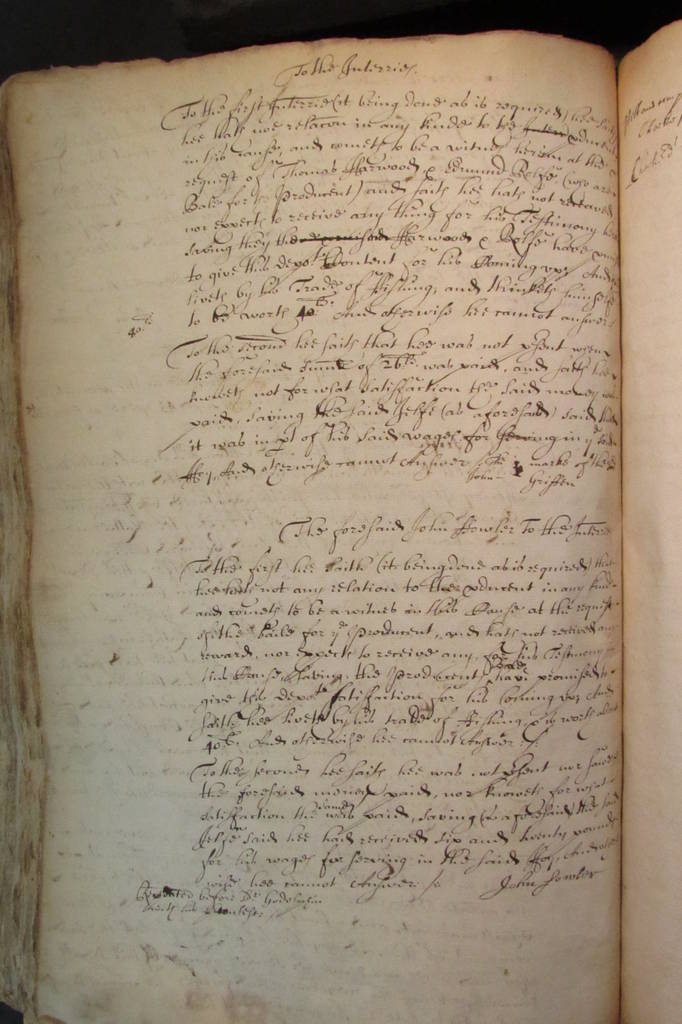 To the Interries.
To the first Interrie (it being done as is required) hee saith
hee hath noe relacon in any kinde to the producent
in this Cause, and cometh to be a witnes herein at the
request of Thomas Harwood & Edmund Jelfe (who are
Baile for the Producent) and saith hee hath not received
nor expects to receive any thing for his Testimony
saving they the said Harwood & Jelfe have
to give this depot Content for his Coming up, And
liveth by his Trade of Fishing, and thinketh himselfe
to be worth 40li. And otherwise hee cannot answer
40li
To the second hee saith that hee was not present when
the foresaid summe of 26li was paid, and saith hee
knoweth not for what satisfaction the said money was
paid, saving the said Jelfe (as aforesaid) said that
it was in pt of his said wages for serving in ye said
Hoy, And otherwise cannot Answer
The marke of the sd
John Griffen
The foresaid John Fowler To the Interries
To the first hee saith (it being done as is required) that
hee hath not any relation to the producent in any kinde
and cometh to be a witnes in this Cause at the request
of the baile for ye Producent, and hath not received any
reward, nor expects to receive any, for his Testimony in
this Cause, saving the Producents baile have promised to
give this depot satisfaction for his Coming up, And
saith hee liveth by his trade of Fishing & is worth about
40li. And otherwise hee cannot Answer
To the second hee saith hee was not present nor saw
the foresaid money paid, nor knoweth for what
satisfaction the same was paid, saving (as aforesaid) the said
Jelfe said hee had received six and twenty pounds
for his wages for serving in the said Hoy, And other
wise hee cannot Answer
John Fowler
Repeated before Dr Godolphin